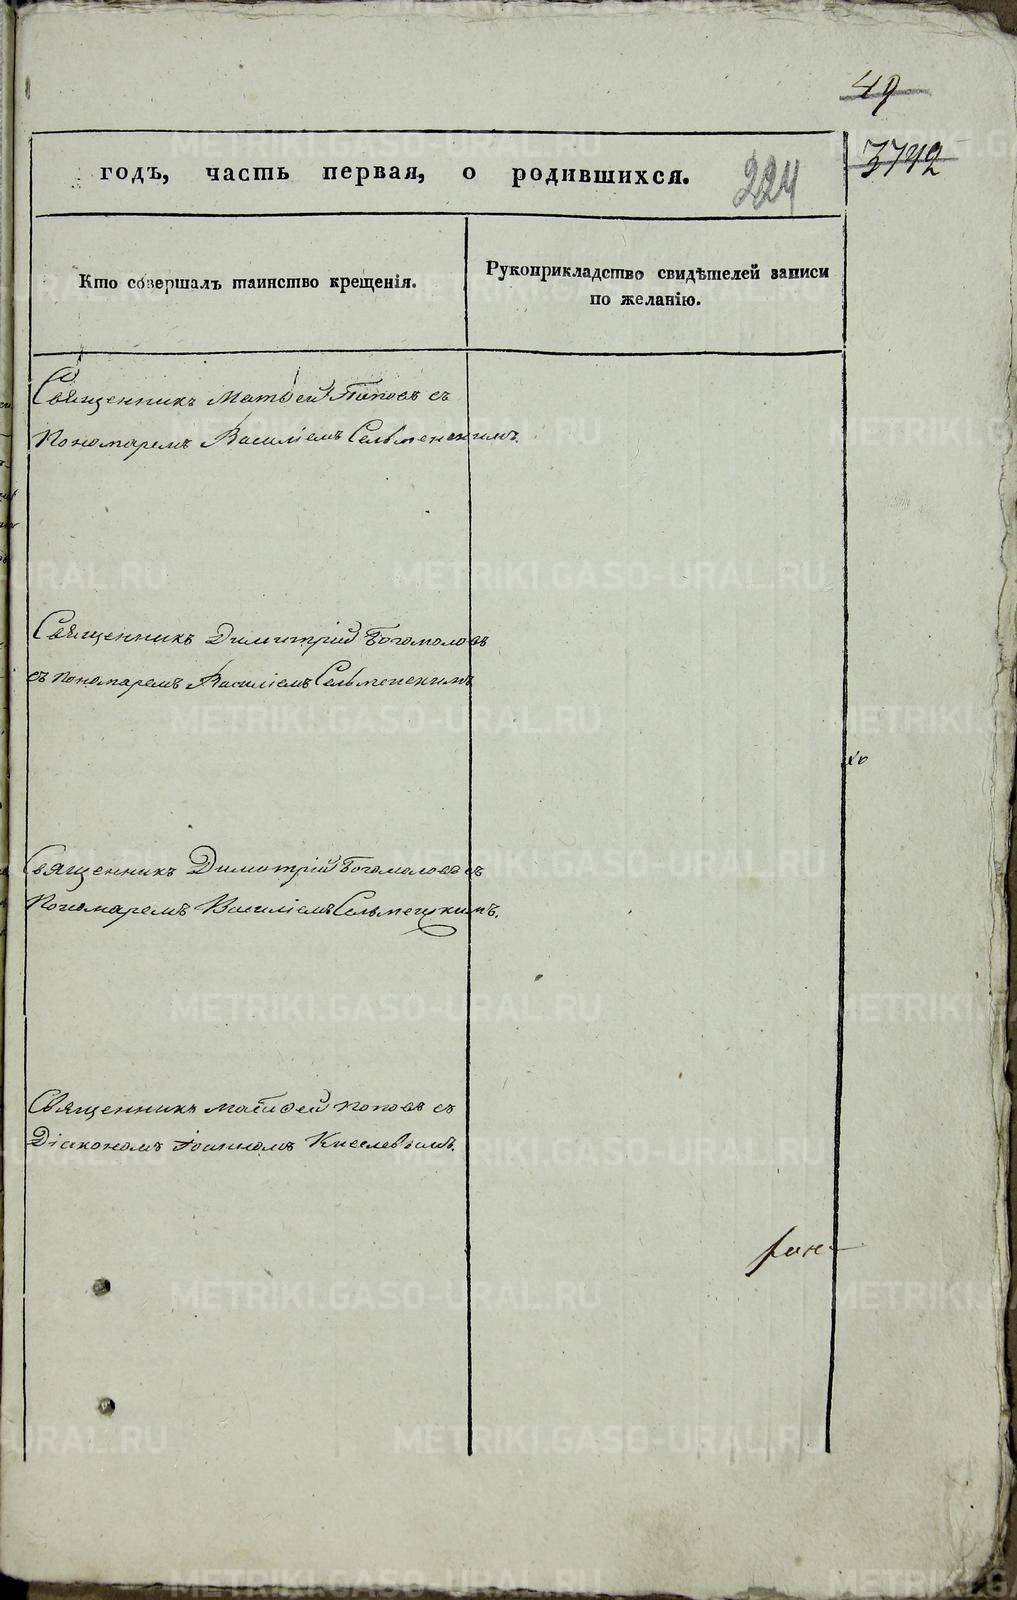 49
3742
годъ, часть первая, о родившихся.
224
Кто совершалъ таинство крещенія.
Рукоприкладство свидѣтелей записи
по желанію.
Священникъ Матѳей Поповъ съ
Пономаремъ Василіемъ Сельменскимъ.
Священникъ Димитрій Богомоловъ
съ пономаремъ Василіемъ Сельменскимъ
Священникъ Димитрій Богомоловъ съ
Пономаремъ Василіемъ Сельменскимъ.
Священникъ Матѳей Поповъ съ
Діякономъ Іоанномъ Киселевымъ.
METRIKI.GASO-URAL.RU